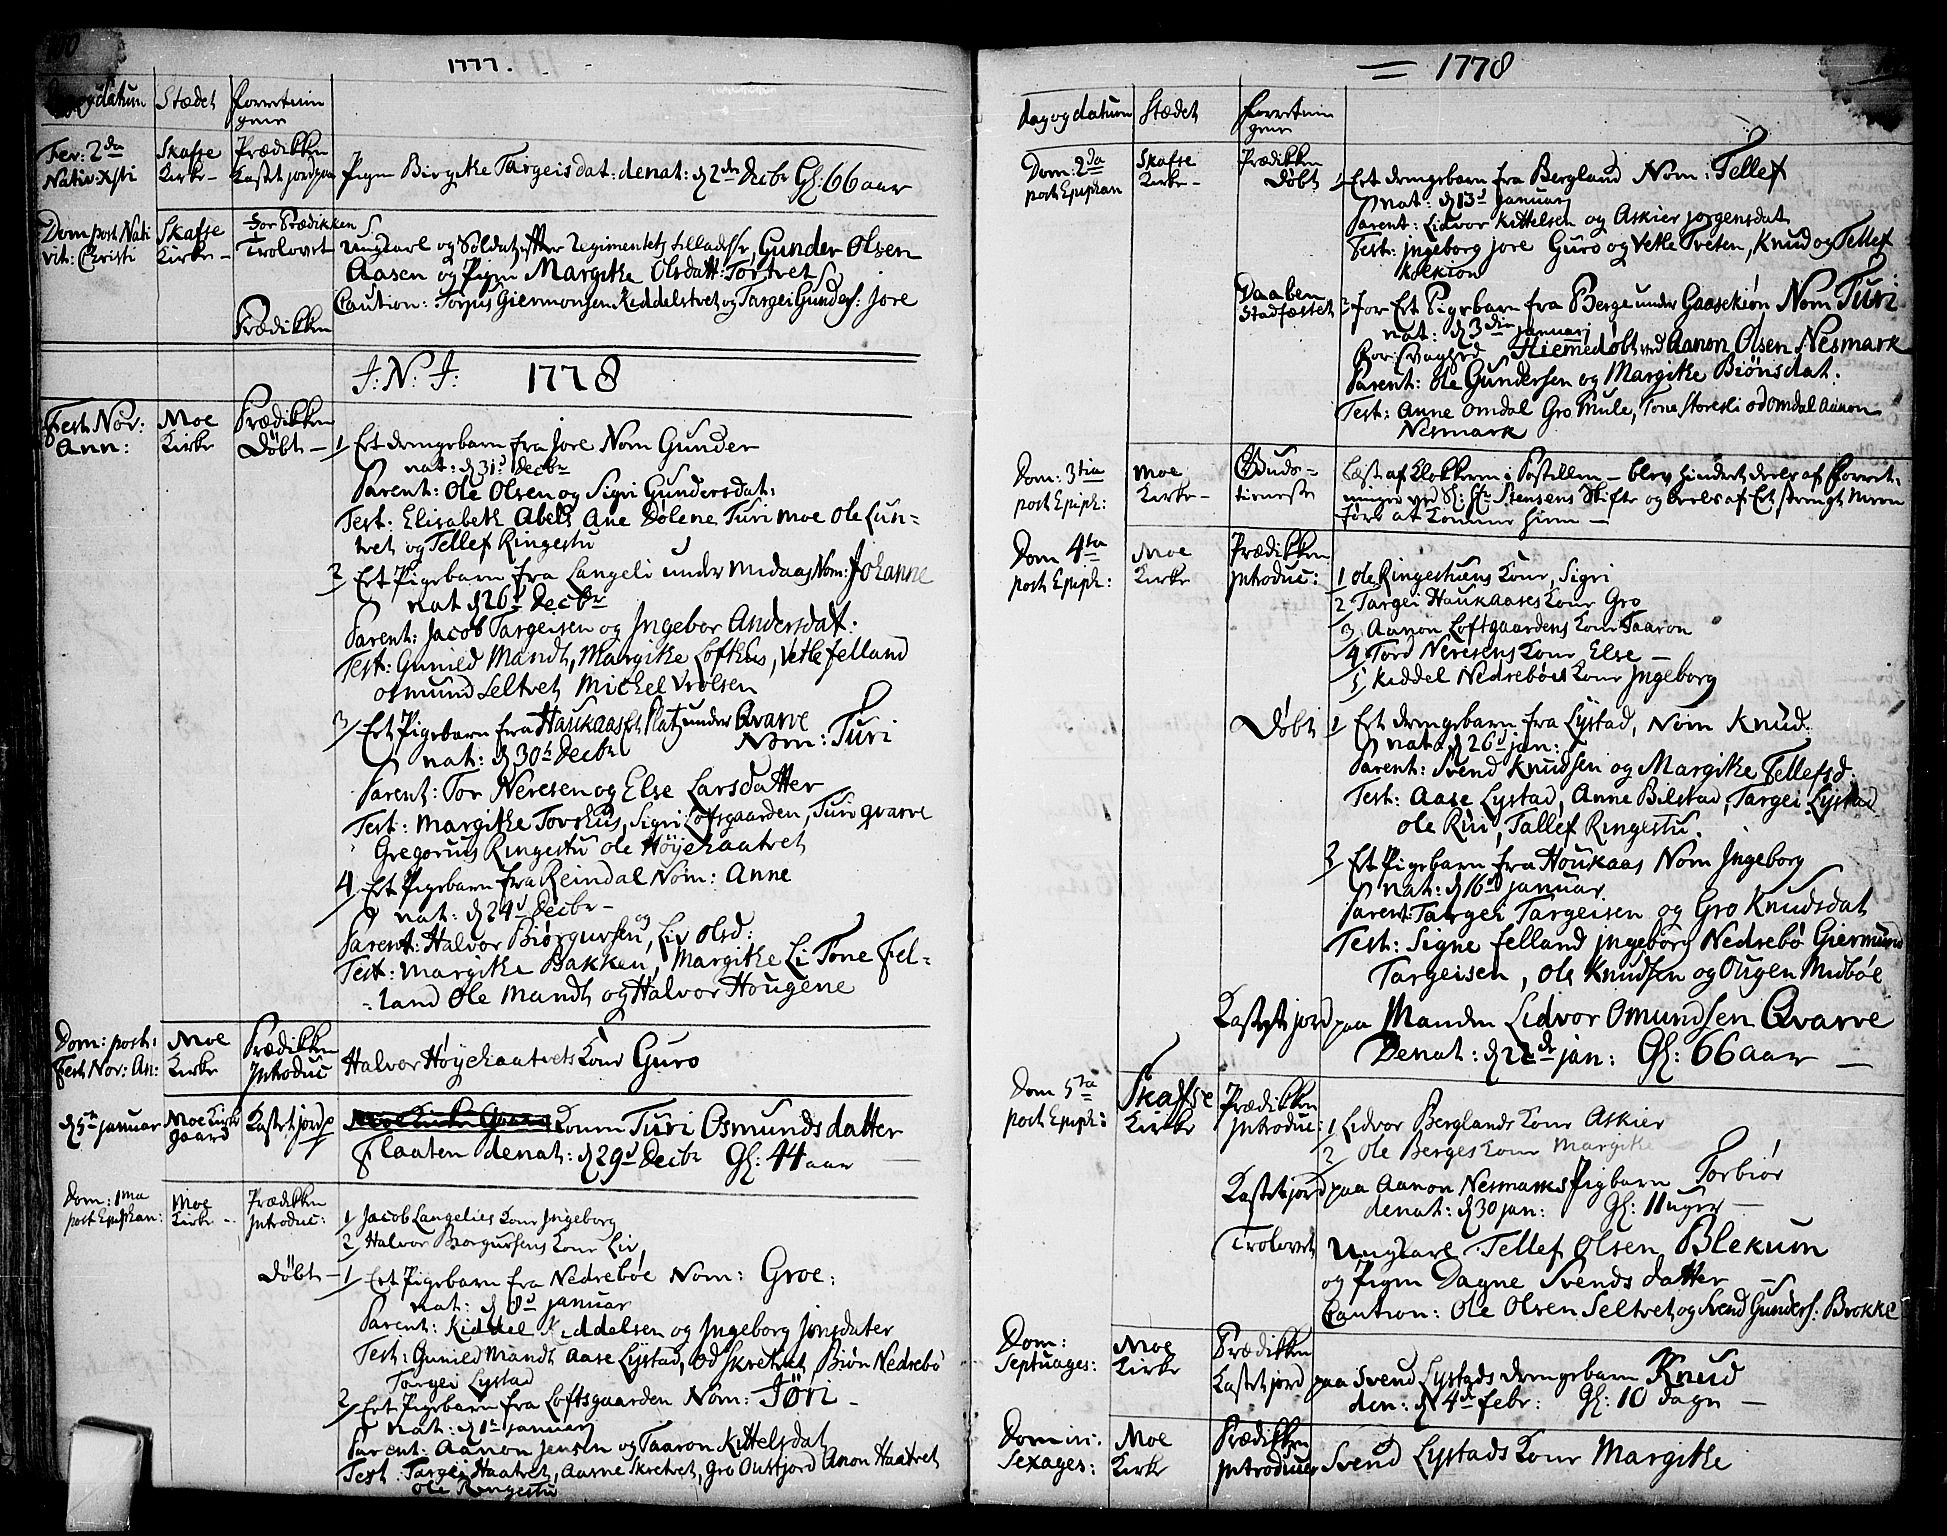 1777.
Dag og datum Stædet Forretnin
gene
Fer: 2da Skafse Prædikken
Nativ: Xsti Kirke- Kastet jord paa Pigen Birgithe Targeisdat: denat: d 2den Decbr Gl: 66 aar
Dom post Nati Skafse For Prædikken
vit: Christi Kirke- Trolovet Ungkarl og Soldat, efter Regimentetz tilladelse, Gunder Olsen
Aasen og Pigen Margithe Olsdatt: Tortvet
Caution: Torjus Giermonsen Keddelstvet og Targei Gunders: Jore
Prædikken
J: N: J: 1778
Fest Nov: Moe Prædikken
Ann: Kirke Døbt - 1 Et drengebarn fra Jore Nom Gunder
nat: d 31. Decbr
Parent: Ole Olsen og Sigri Gundersdat:
Test: Elisabeth Abels Ane Dølene Turi Moe Ole Lun-
tvet og Tellef Ringestu
2 Et Pigebarn fra Langeli under Midaas Nom: Johanne
nat d 26 Decbr
Parent: Jacob Targeisen og Ingebor Andersdat:
Test: Gunild Mandt, Margithe Lofthus, Vetle felland
osmund Seltvet Michel Vrolsen
3 Et Pigebarn fra Haukaas et Platz under Qvarve
nat: d 30t Decbr Nom: Turi
Parent: Tor Neresen og Else Larsdatter
Test: Margithe Torshus, Sigri Loftsgaarden, Turi qvarve
Gregorius Ringestu Ole Høyehaatvet
4 Et Pigebarn fra Reindal Nom: Anne
nat: d 24d Decbr-
Parent: Halvor Biørgursen og Liv olsd:
Test: Margithe Bakken, Margithe Li Tone Fel-
-land Ole Mandt og Halvor Hougene
Dom: post: Moe Prædikken
Fest Nov: An: Kirke Introduc Halvor Høyehaatvets Kone Guro
d 5te januar Moe Kirke Kastet jord p Konen Turi Osmundsdatter
gaard Flaaten denat: d 29d Decbr Gl: 44 aar -
Dom: 1ma Moe Prædikken
post Epiphan: Kirke - Introduc: 1 Jacob Langelies Kone Ingeborg
2 Halvor Biørgursens Kone Liv
Døbt - 1 Et Pigebarn fra Nedrebøe Nom: Groe:
nat: d 8d januar
Parent: Kiddel Kiddelsen og Ingeborg Jonsdater
Test: Gunild Mandt Aase Lystad, Od Skretvet Biøn Nedrebø
Targei Lystad
2 Et Pigebarn fra Loftsgaarden Nom: Jøri -
nat: d 1te januar
Parent: Aanon Jensen og Taaron Kittelsdat
Test Targei Haatvet, Aasne Skretvet, Gro Oustjord Anon Haatvet
Ole Ringestu
1778
Dag og datum Stædet Forretnin
gene
Dom: 2da Skafse Prædikken
post Epiphan Kirke- Døbt 1 Et drengebarn fra Bergland Nom: Tellef
nat: d 13d januarj
Parent: Lidvor Kittelsen og Askier jorgensdat
Test: Ingeborg Jore Guro og Vetle Tveten, Knud og Tellef
Kolkion
Daaben
Stadfæstet 2 for Et Pigebarn fra Berge under Gaasekiøn Nom Turi
nat: d 3die januarj
for Svaghed Hiemmedøbt ved Aanon Olsen Nesmark
Parent: Ole Gundersen og Margithe Biønsdat:
Test: Anne Omdal Gro Mule, Tone Storesli Od Omdal Aanon
Nesmark
Dom: 3tia Moe Guds=
post Epiph: Kirke- tieneste Læst af Klokkeren i Postillen - blev hindret deels af Forret-
ninger ved Sl: Hr Stensens Skifte og deels af Et strengt Uveir
føre at komme hiem -
Dom 4ta Moe Prædikken
post Epiph: Kirke Introduc: 1 Ole Ringestuens Kone, Sigri
2 Targei Haukaases Kone Gro
3 Aanon Loftgaardens Kone Taaron
4 Tord Neresens Kone Else -
5 Keddel Nedrebøes Kone Ingeborg
Døbt 1 Et drengebarn fra Lystad, Nom Knud.
nat d 26d jan:
Parent: Svend Knudsen og Margithe Tellefsd:
Test: Aase Lystad, Anne Bilstad, Targei Lystad
Ole Rui, Tallef Ringestu.
2 Et Pigebarn fra Houkaas Nom Ingeborg
nat: d 16d januar
Parent: Targei Targeisen og Gro Knudsdat
Test: Signe felland Ingeborg Nedrebø Giermund
Targeisen, Ole Knudsen og Ougen Midbøe
Kastet jord paa Manden Lidvor Omundsen Qvarve
Denat: d 22de jan: Gl: 66 aar -
Dom 5ta Skafse Prædikken
post Epiph: Kirke Introduc: 1 Lidvor Berglands Kone Askier
2 Ole Berges Kone Margithe -
Kastet jord paa Aanon Nesmarks Pigbarn Torbiør
denat: d 30 jan: Gl: 11 uger -
Trolovet Ungkarl Tellef Olsen Blekum
og Pigen Dagne Svendsdatter -
Caution: Ole Olsen Seltvet og Svend Gunders: Brokke
Dom: Moe Prædikken
Septuages: Kirke Kastet jord paa Svend Lystads drengebarn Knud
den: d 4de febr: Gl: 10 dage -
Domin: Moe Prædikken
Sexages: Kirke Introduc Svend Lystads Kone Margithe